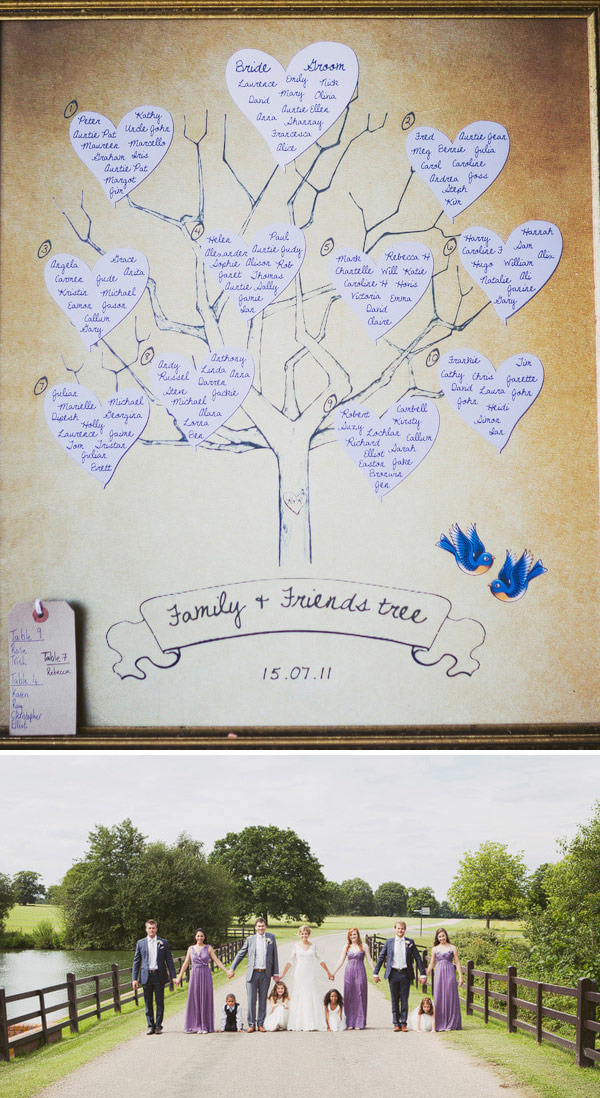 Bride Groom
Laurence Emily Nick
David Mary Olina
Auntie Ellen
Anna Sharray
Francesca
Alice
1
Peter Kathy
Auntie Pat Uncle John
Maureen Marcello
Graham Iris
Auntie Pat
Margot
Jim
2
Fred Auntie Jean
Meg Bernie Julia
Carol Caroline
Andrea Joss
Steph
Kim
3
Angela Grace
Carmen Jude Anita
Kristin Michael
Eamon Jason
Callum
Gary
4
Helen Paul
Alexander Auntie Judy
Sophie Alison Rob
Janet Thomas
Auntie Sally
Jamie
Ian
5
Mark Rebecca H
Chantelle Will Katie
Caroline H Hons
Victoria Emma
David
Claire
6
Harry Hannah
Caroline F Sam Alix
Hugo William
Natalie Ali
Janine
Gary
7
Julian
Marielle Michael
Dipesh Georgina
Holly
Laurence Jaime
Tom Tristan
Julian
Brett
8
Andy Anthony
Russel Linda Anna
Steve Darren
Michael Jackie
Alana
Lorna
Ben
9
Robert Cambell
Suzy Kirsty
Lochlan Callum
Richard
Elliot Sarah
Easton Jake
Bronwin
Jen
10
Frankie Tim
Cathy Chris Janette
David Laura John
John Heidi
Simon
Ian
Family + Friends tree
15.07.11
Table 9
Rosie
Trish
Table 7
Rebecca
Table 4
Karen
Ray
Christopher
Elliot